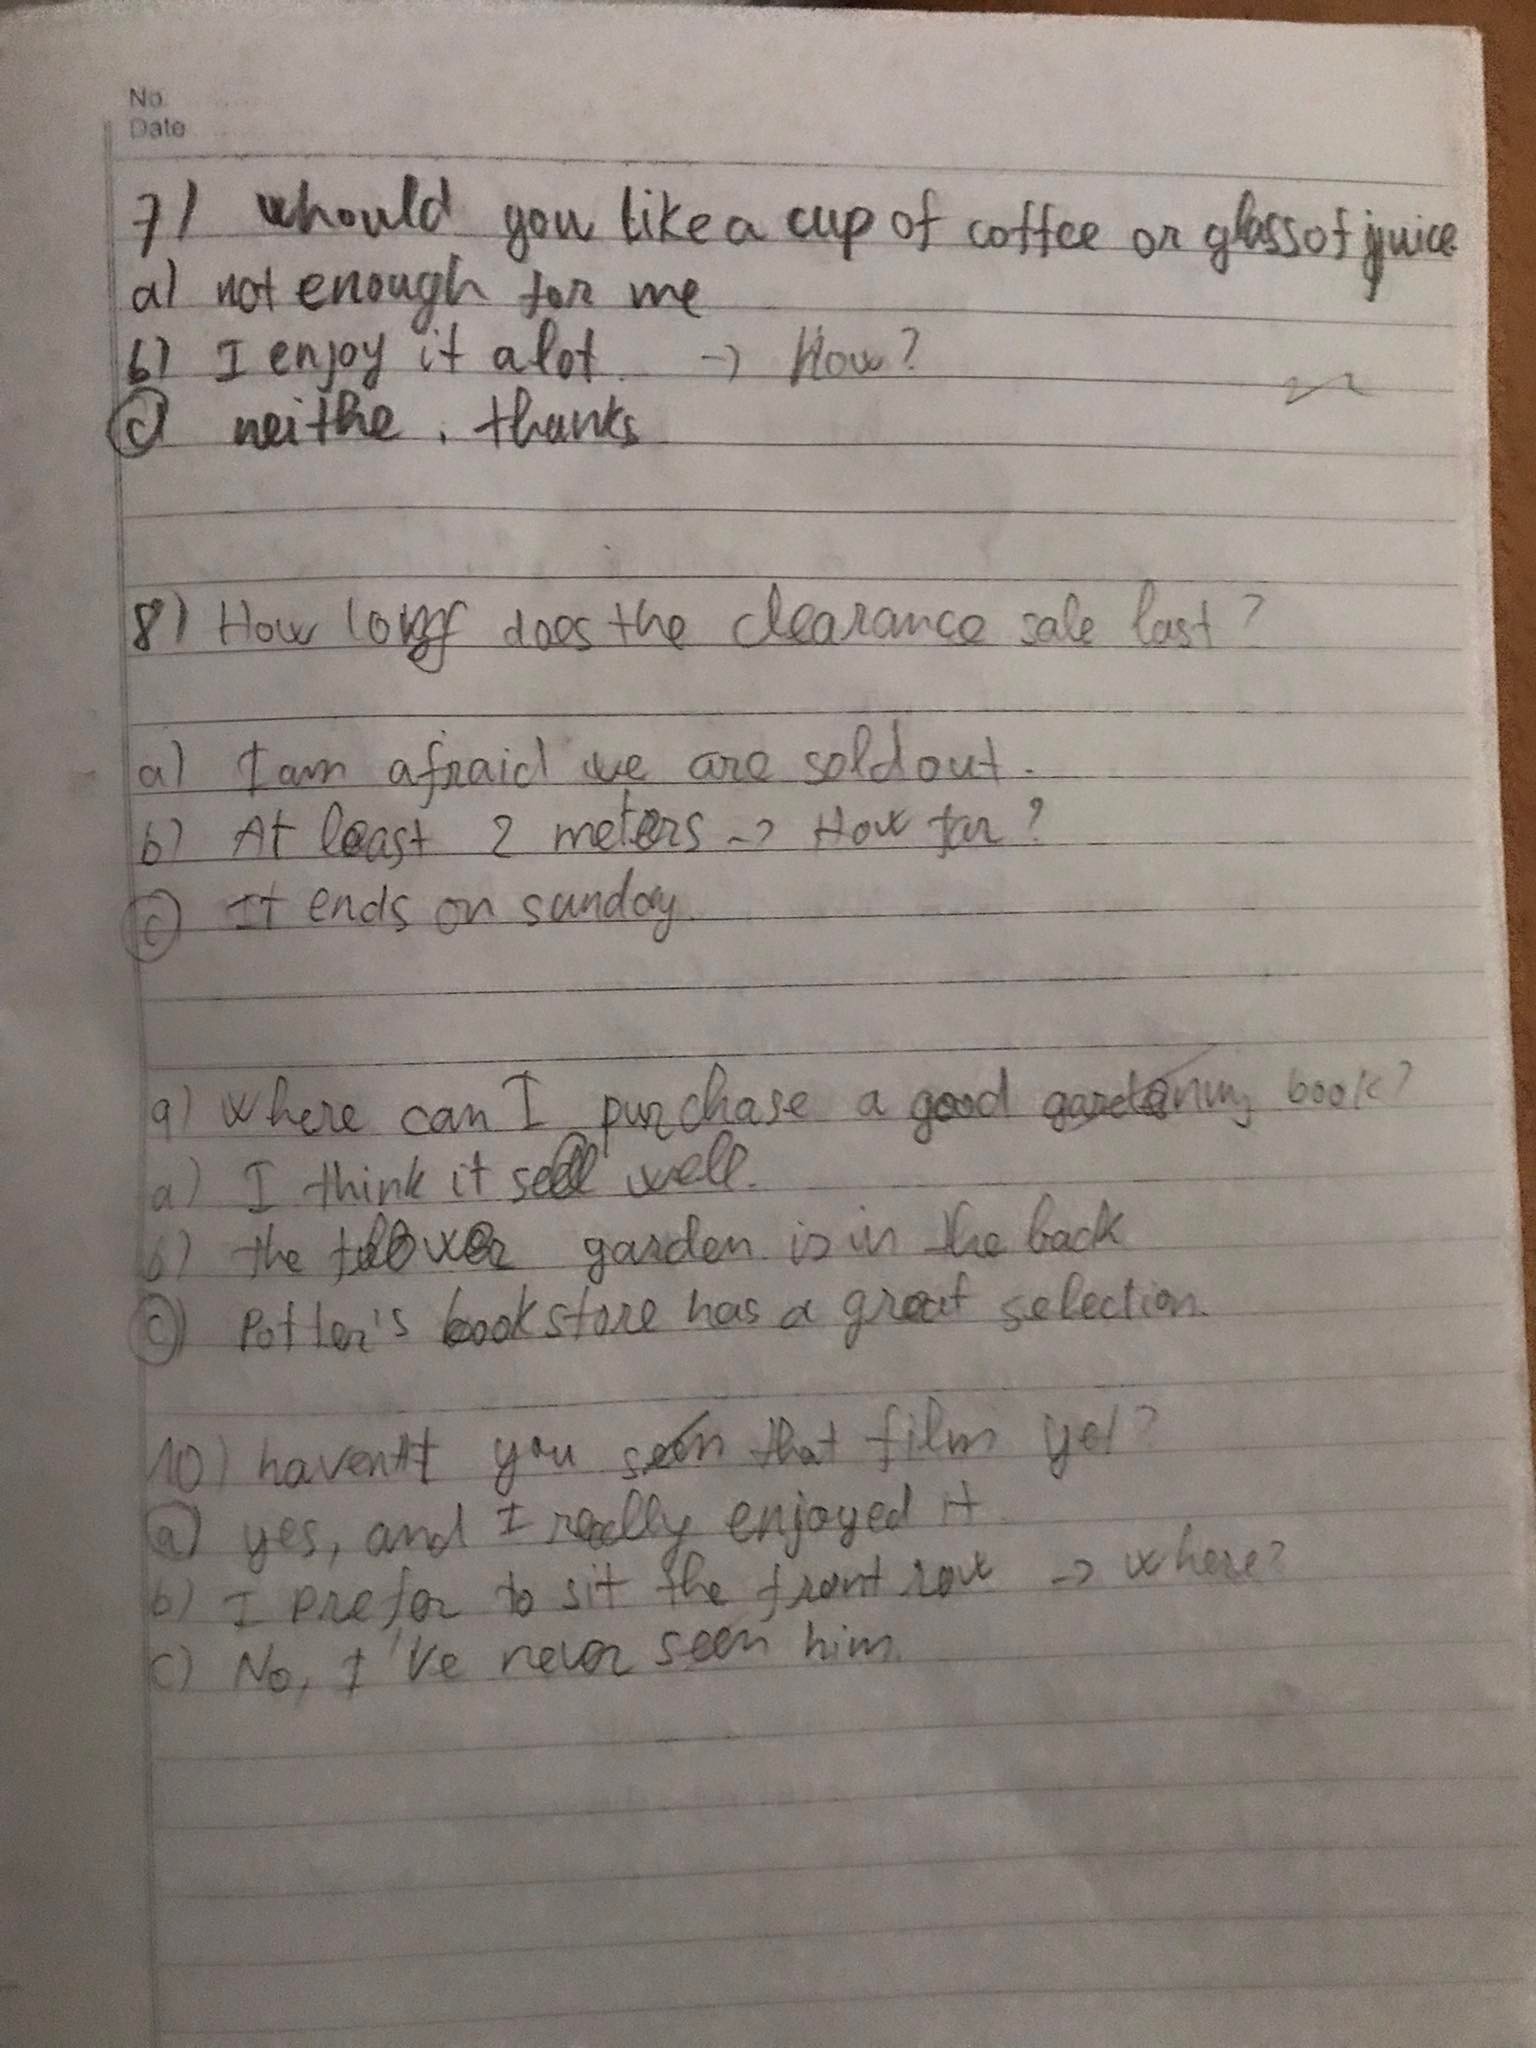 No.
Date
7) whould you like a cup of coffee or glass of juice
a) not enough for me
b) I enjoy it a lot. -> How?
c) neithe, thanks
8) How long does the clearance sale last?
a) I am afraid we are sold out.
b) At least 2 meters -> How far?
c) It ends on sunday.
9) where can I purchase a good gardening book?
a) I think it sell well.
b) the flower garden is in the back
c) Potter's bookstore has a great selection.
10) haven't you seen that film yet?
a) yes, and I really enjoyed it.
b) I prefer to sit the front row -> where?
c) No, I've never seen him.